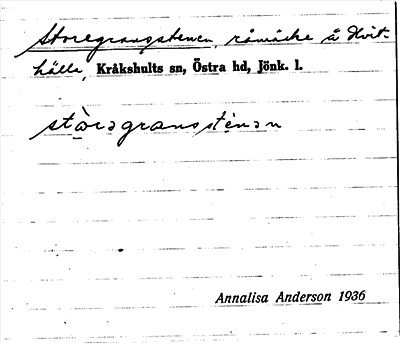 Storegransstenen, råmärke å Hvit-
hälla, Kråkshults sn, Östra hd, Jönk. l.
stòrəgransste̱nən
Annalisa Anderson 1936